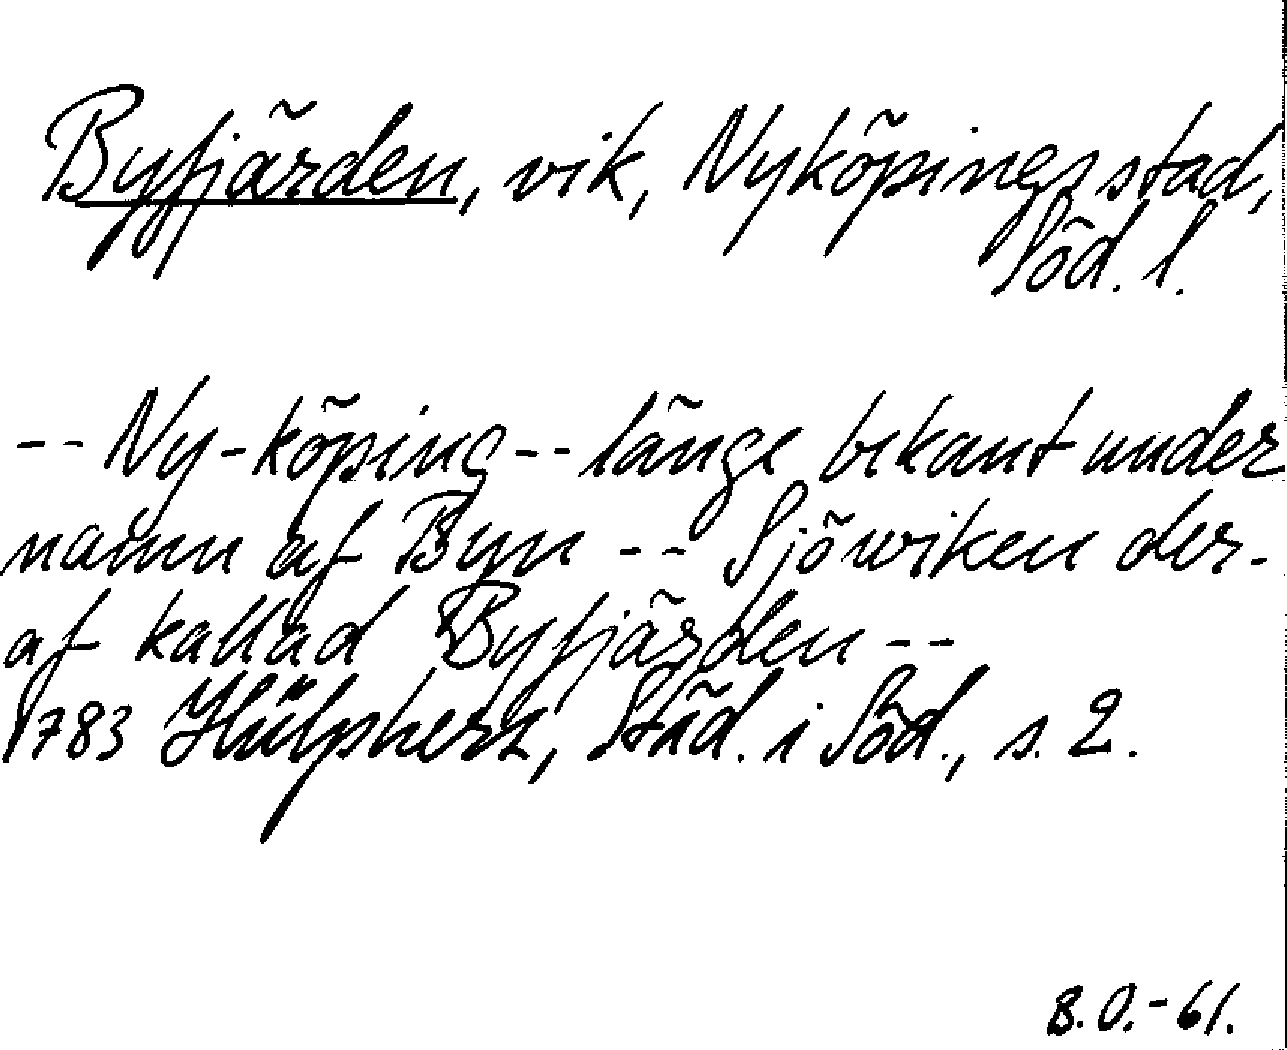 Byfjärden, vik, Nyköpings stad,
Söd. l.
-- Ny-köping -- länge bekant under
namn af Byn -- Sjöwiken der-
af kallad Byfjärden --
1783 Hülphers, Städ. i Söd., s. 2.
B.O.-61.